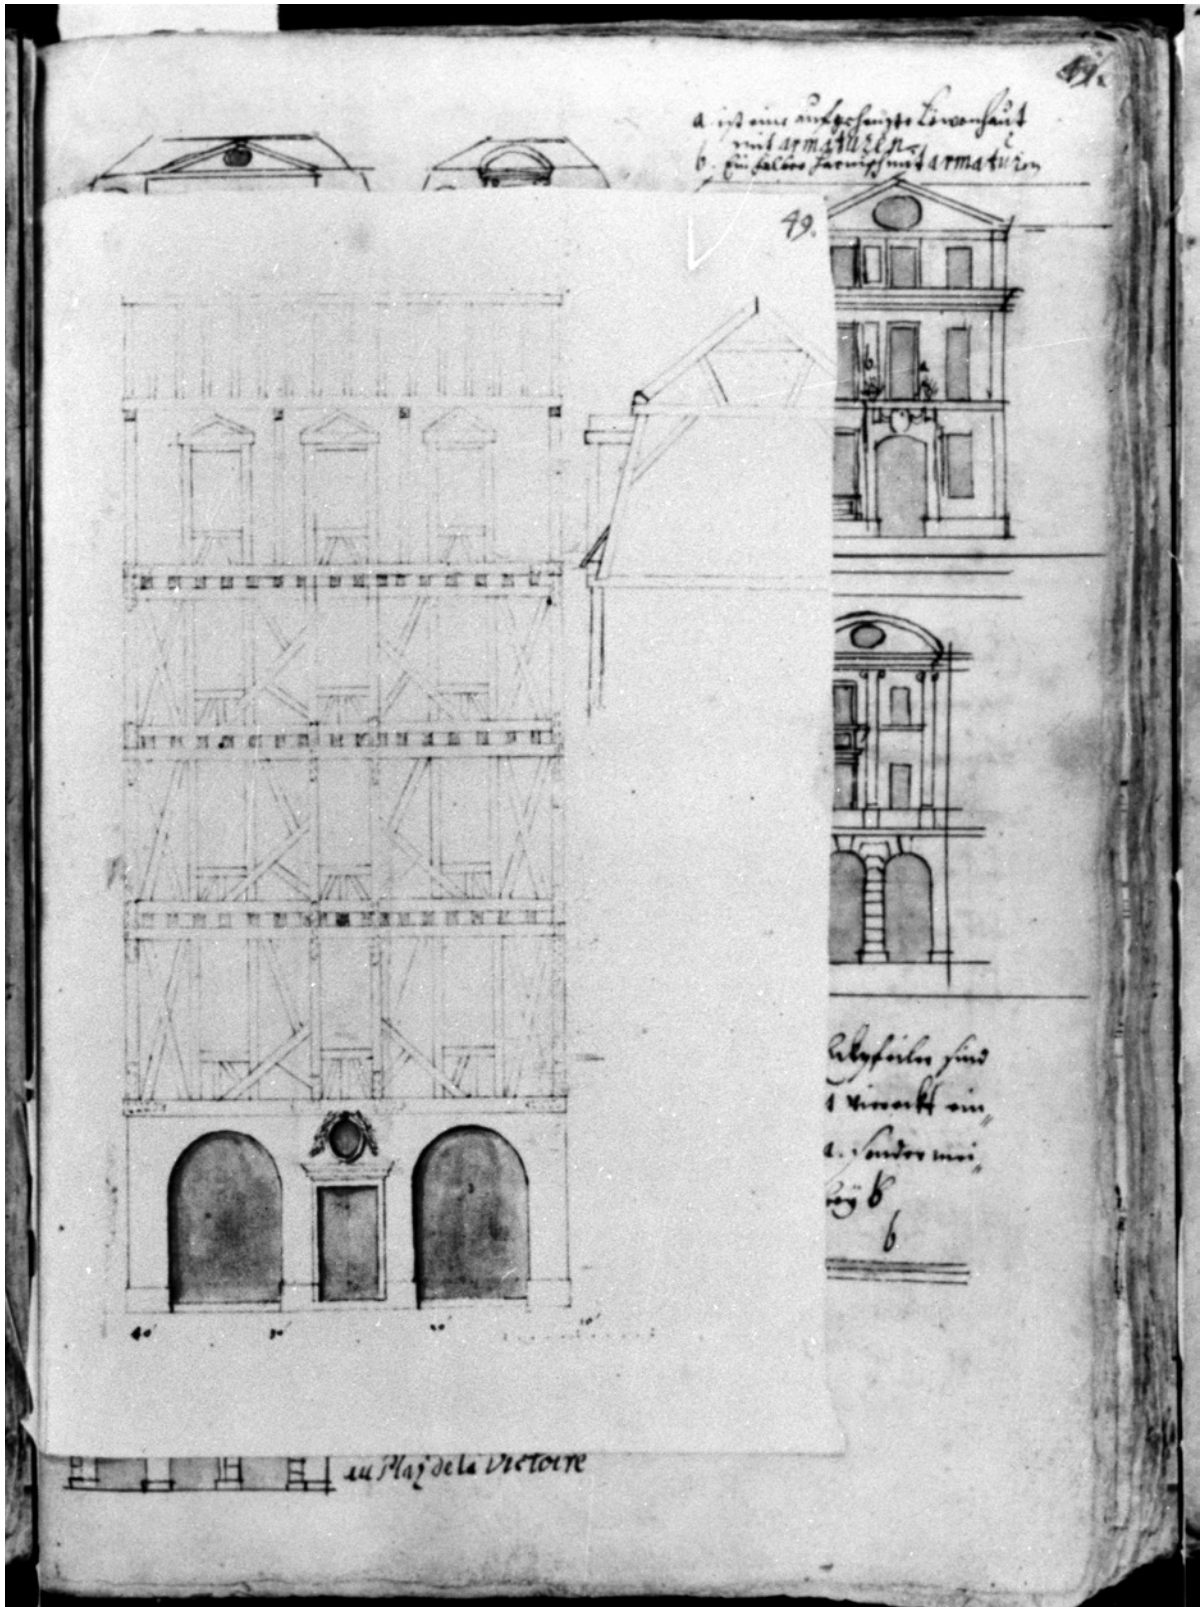 49.
a ist eine aufgehengte Löwenhaut
mit armaturen
b. Ein halber harnisch mit armaturen
49.
b
a
sind
a. sonder
beÿ b
b
40' 30' 20' 10'
au Plaz de la Victoire